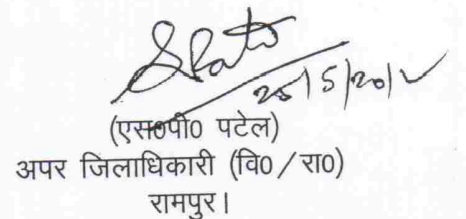 25/5/2012
(एस०पी० पटेल)
अपर जिलाधिकारी (वि०/रा०)
रामपुर।